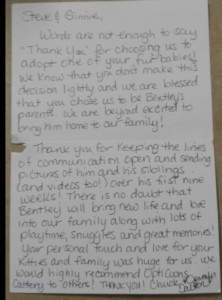 Steve & Ginnie,
Words are not enough to say
"Thank You" for choosing us to
adopt one of your fur babies!
We know that you don't make this
decision lightly and we are blessed
that you chose us to be Bentley's
parents. We are beyond excited to
bring him home to our family!
Thank you for keeping the lines
of communication open and sending
pictures of him and his siblings
(and videos too!) over his first nine
weeks! There is no doubt that
Bentley will bring new life and love
into our family along with lots of
playtime, snuggles and great memories!
Your personal touch and love for your
kitties and family was huge for us. We
would highly recommend Opticoons
Cattery to others! THANK YOU! Chuck &